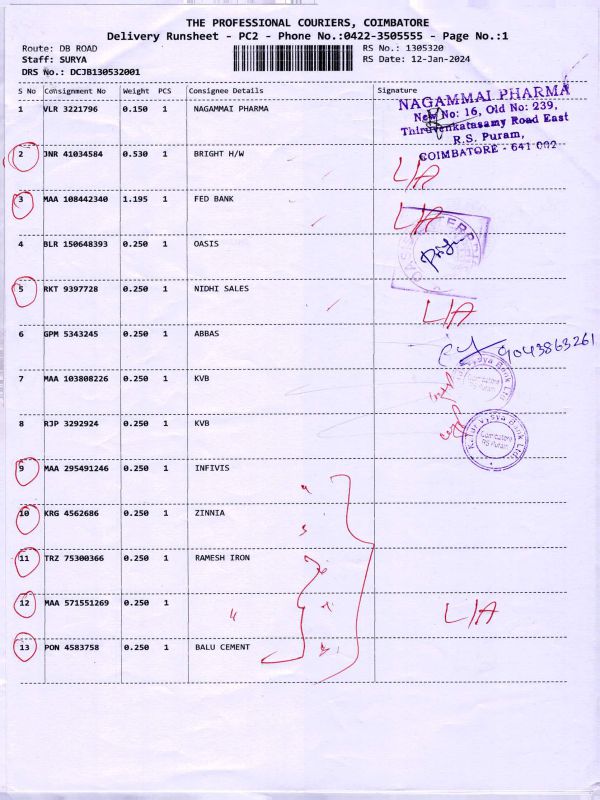 THE PROFESSIONAL COURIERS, COIMBATORE
Delivery Runsheet - PC2 - Phone No.:0422-3505555 - Page No.:1
Route: DB ROAD RS No.: 1305320
Staff: SURYA RS Date: 12-Jan-2024
DRS No.: DCJB130532001
S No Consignment No Weight PCS Consignee Details Signature
1 VLR 3221796 0.150 1 NAGAMMAI PHARMA
NAGAMMAI PHARMA
New No: 16, Old No: 239,
Thiruvenkatasamy Road East
R.S. Puram,
COIMBATORE - 641 002
2 JNR 41034584 0.530 1 BRIGHT H/W L/A
3 MAA 108442340 1.195 1 FED BANK L/A
4 BLR 150648393 0.250 1 OASIS
5 RKT 9397728 0.250 1 NIDHI SALES L/A
6 GPM 5343245 0.250 1 ABBAS 9043863261
7 MAA 103808226 0.250 1 KVB
8 RJP 3292924 0.250 1 KVB
Coimbatore
RS Puram
9 MAA 295491246 0.250 1 INFIVIS
10 KRG 4562686 0.250 1 ZINNIA
11 TRZ 75300366 0.250 1 RAMESH IRON
12 MAA 571551269 0.250 1 " L/A
13 PON 4583758 0.250 1 BALU CEMENT